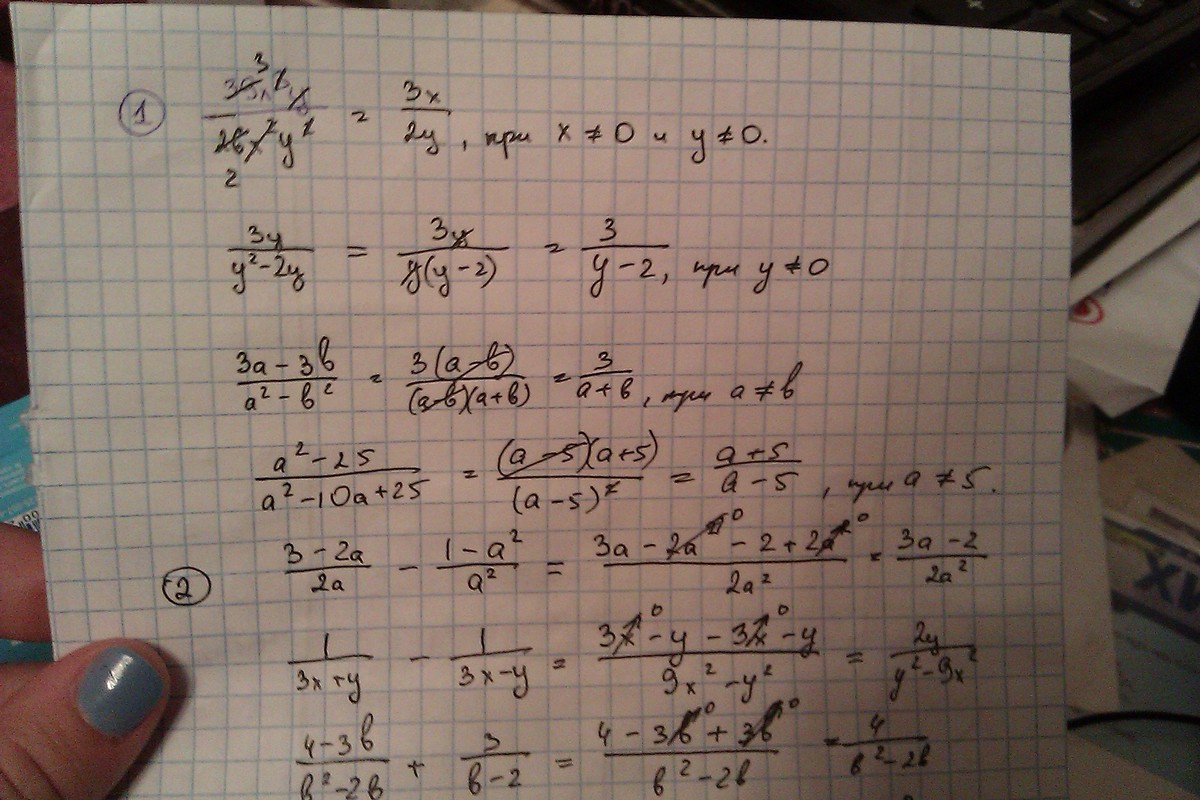 ① = 3x/2y, при x ≠ 0 и y ≠ 0.
3y/(y² - 2y) = 3y/(y(y - 2)) = 3/(y - 2), при y ≠ 0
(3a - 3b)/(a² - b²) = 3(a - b)/((a - b)(a + b)) = 3/(a + b), при a ≠ b
(a² - 25)/(a² - 10a + 25) = (a - 5)(a + 5)/(a - 5)² = (a + 5)/(a - 5), при a ≠ 5.
② (3 - 2a)/2a - (1 - a²)/a² = (3a - 2a² - 2 + 2a²)/2a² = (3a - 2)/2a²
1/(3x + y) - 1/(3x - y) = (3x - y - 3x - y)/(9x² - y²) = 2y/(y² - 9x²)
(4 - 3b)/(b² - 2b) + 3/(b - 2) = (4 - 3b + 3b)/(b² - 2b) = 4/(b² - 2b)